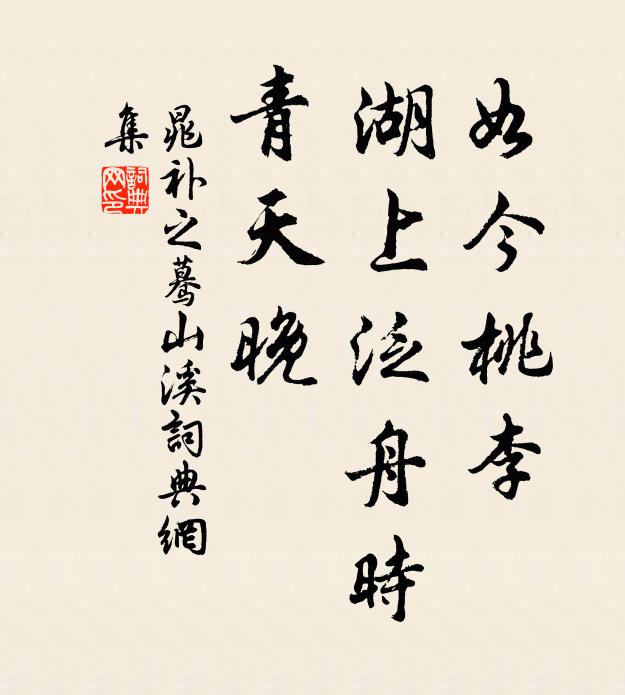 如今桃李
湖上泛舟時
青天晚
晁补之蓦山溪詞典網
集
詞典網印